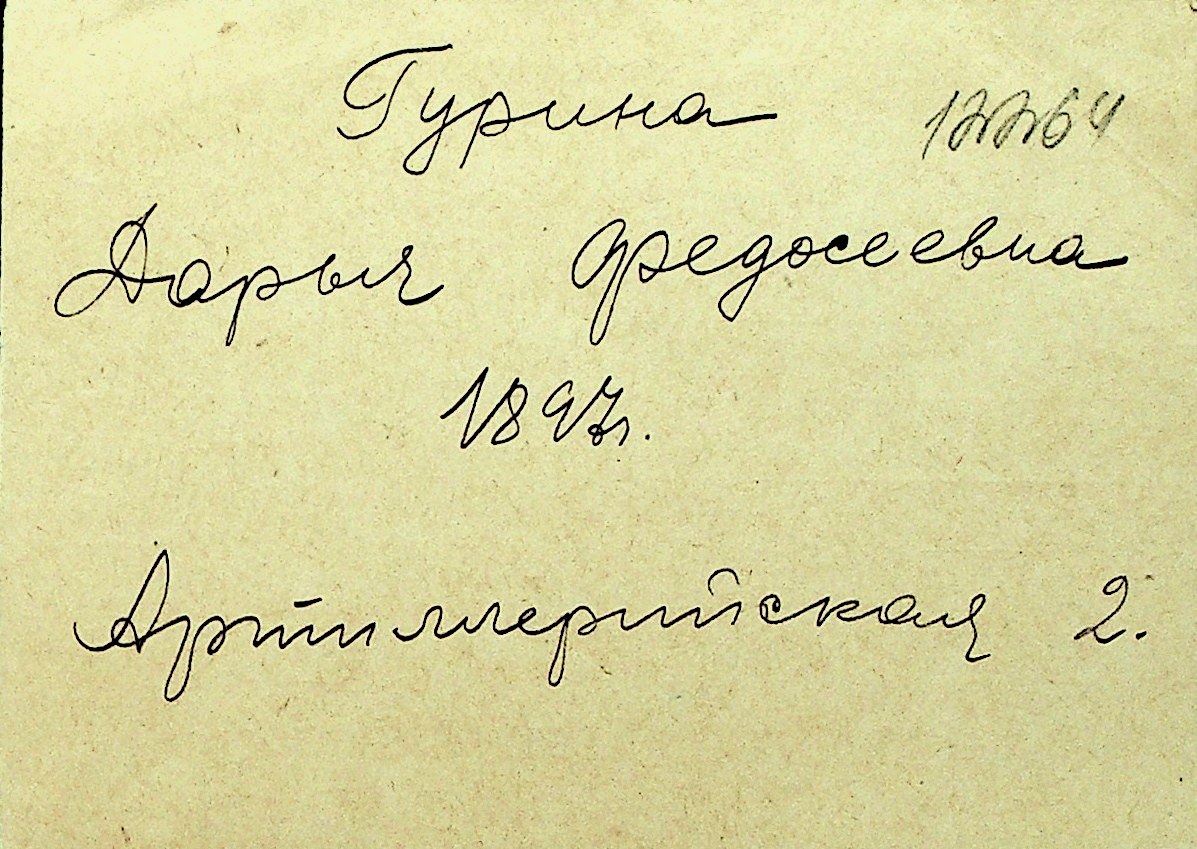 Гурина 12264
Дарья Федосеевна
1897г.
Артиллерийская 2.